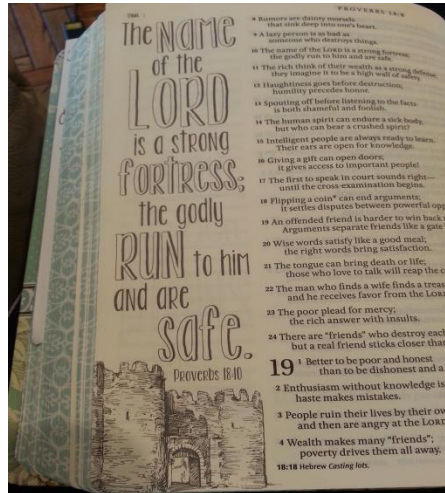 PROVERBS 18:8
The NAME
of the
LORD
is a strong
fortress;
the godly
RUN to him
and are
safe.
Proverbs 18:10
8 Rumors are dainty morsels
that sink deep into one's heart.
9 A lazy person is as bad as
someone who destroys things.
10 The name of the LORD is a strong fortress;
the godly run to him and are safe.
11 The rich think of their wealth as a strong defense;
they imagine it to be a high wall of safety.
12 Haughtiness goes before destruction;
humility precedes honor.
13 Spouting off before listening to the facts
is both shameful and foolish.
14 The human spirit can endure a sick body,
but who can bear a crushed spirit?
15 Intelligent people are always ready to learn.
Their ears are open for knowledge.
16 Giving a gift can open doors;
it gives access to important people!
17 The first to speak in court sounds right—
until the cross-examination begins.
18 Flipping a coin* can end arguments;
it settles disputes between powerful opp
19 An offended friend is harder to win back
Arguments separate friends like a gate
20 Wise words satisfy like a good meal;
the right words bring satisfaction.
21 The tongue can bring death or life;
those who love to talk will reap the c
22 The man who finds a wife finds a treas
and he receives favor from the LORD
23 The poor plead for mercy;
the rich answer with insults.
24 There are “friends” who destroy each
but a real friend sticks closer than
19 1 Better to be poor and honest
than to be dishonest and a
2 Enthusiasm without knowledge is
haste makes mistakes.
3 People ruin their lives by their ow
and then are angry at the LORD
4 Wealth makes many “friends”;
poverty drives them all away.
18:18 Hebrew Casting lots.